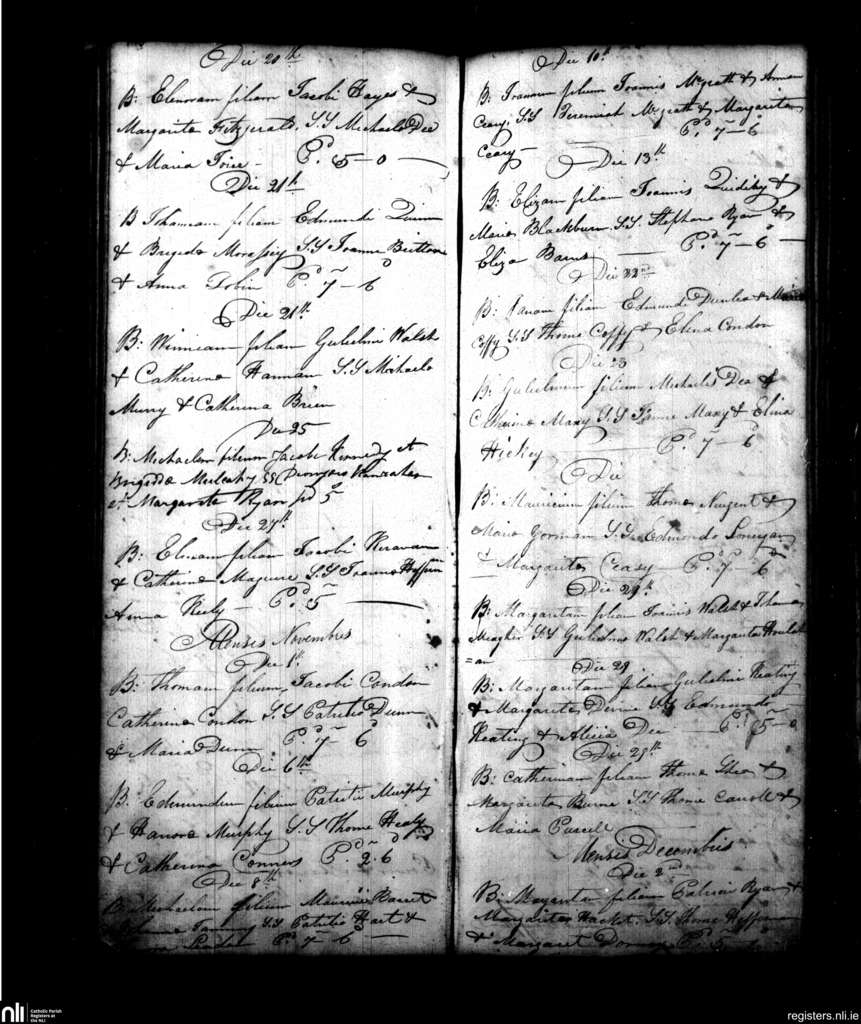 Die 20th
B: Elenoram filiam Jacobi Hayes &
Margarita Fitzgerald, S.S Michaele Dee
& Maria Toise – Pd. 5 – 0
Die 21th
B Thomam filium Edmundi Quinn
& Brigida Morassey S.S Joanne Britton
& Anna Tobin Pd. 7 – 6
Die 21th
B: Winniam filiam Gulielmi Walsh
& Catherina Hannan S.S Michaele
Murry & Catherina Brien
Die 25
B: Michaelem filium Jacobi Kennedy et
Brigidda SS Dionysio
et Margarita Ryan pd 5
Die 27th
B: Elenam filiam Jacobi
& Catherina Maguire S.S Joanne
Anna Kiely – Pd. 5
Mensis Novembris
Die 1st
B: Thomam filium, Jacobi Condon
Catherina Condon S.S Patritio Dunn
& Maria Dunn Pd. 7 6
Die 6th
B. Edmundum filium Patritii Murphy
& Hanora Murphy S.S Thoma Healy
& Catherina Conners Pd. 2. 6
Die 8th
B Michaelem filium Mauritii Barret
S.S Patritio Hart &
Pd 7 – 6
Die 10th
B. Joannem filium Joannis McGrath & Annae
Ceasy, S.S Jeremiah McGrath & Margarita
Ceasy – Pd. 7 – 6
Die 13th
B: Elizam filiam Joannis Quidihy &
Maria Blackburn S.S. Stephano Ryan &
Eliza Barns Pd. 7 – 6
Die 22nd
B: filiam Edmundi & Maria
Coffy S.S Thoma Coffy & Elena Condon
Die 23
B: Gulielmum filium Michaelis Dea &
Catherina Mary S.S Mary & Elena
Hickey Pd. 7 – 6
Die
B: Mauricium filium Thoma Nugent &
Maria Gorman S.S. Edmondo Lonergan
& Margarita Ceasy Pd. 7 6
Die 29th
B: Margaritam filiam Joannis Walsh &
Meagher S.S Gulielmo Walsh & Margarita Houlah
=an
Die 29
B: Margaritam filiam Gulielmi Keating
& Margarita S.S Edmundo
Keating & Alicia Dee Pd. 5 – 0
Die 29th
B: Catherinam filiam Thoma Shea &
Margarita Burne S.S Thoma Carroll &
Maria Purcell
Mensis Decembris
Die 2nd
B: Margaritam filiam Patricii Ryan &
Margarita Hacket S.S. Thoma Heffernan
& Margaret Pd 5
nli
Catholic Parish
Registers at
the NLI
registers.nli.ie